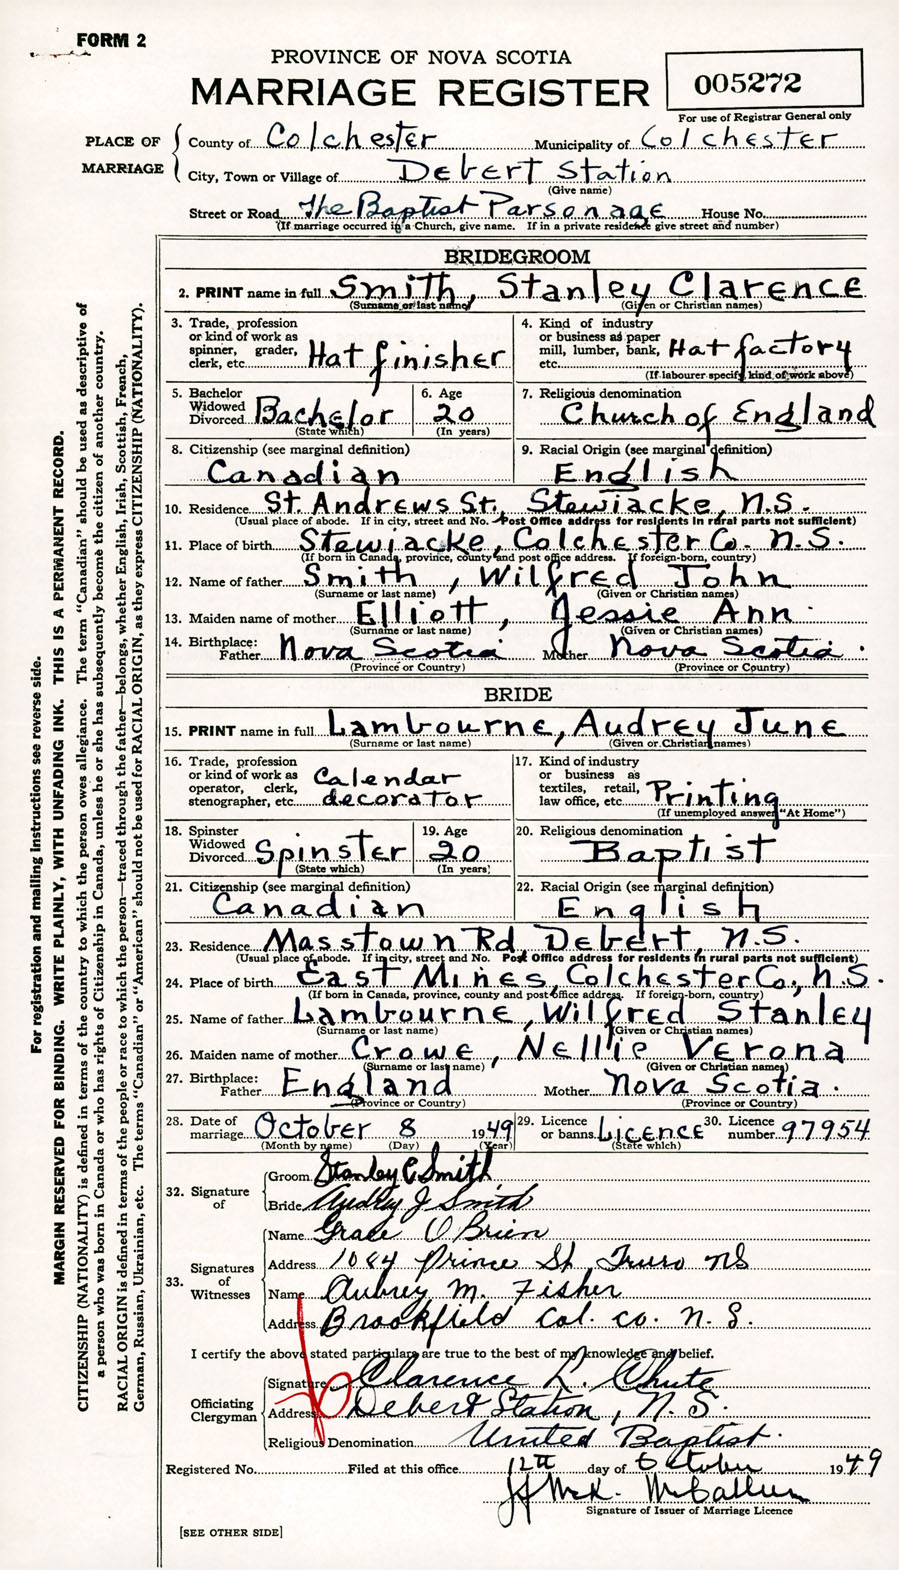 FORM 2
PROVINCE OF NOVA SCOTIA
MARRIAGE REGISTER
005272
For use of Registrar General only
PLACE OF MARRIAGE
County of Colchester Municipality of Colchester
City, Town or Village of Debert Station
(Give name)
Street or Road The Baptist Parsonage House No.
(If marriage occurred in a Church, give name. If in a private residence give street and number)
BRIDEGROOM
2. PRINT name in full Smith, Stanley Clarence
(Surname or last name) (Given or Christian names)
3. Trade, profession or kind of work as spinner, grader, clerk, etc. Hat finisher
4. Kind of industry or business as paper mill, lumber, bank, etc. Hat factory
(If labourer specify kind of work above)
5. Bachelor Widowed Divorced Bachelor 6. Age 20
(State which) (In years)
7. Religious denomination Church of England
8. Citizenship (see marginal definition) Canadian
9. Racial Origin (see marginal definition) English
10. Residence St. Andrews St., Stewiacke, N.S.
(Usual place of abode. If in city, street and No. Post Office address for residents in rural parts not sufficient)
11. Place of birth Stewiacke, Colchester Co. N.S.
(If born in Canada, province, county and post office address. If foreign-born, country)
12. Name of father Smith, Wilfred John
(Surname or last name) (Given or Christian names)
13. Maiden name of mother Elliott, Jessie Ann.
(Surname or last name) (Given or Christian names)
14. Birthplace: Father Nova Scotia Mother Nova Scotia.
(Province or Country) (Province or Country)
BRIDE
15. PRINT name in full Lambourne, Audrey June
(Surname or last name) (Given or Christian names)
16. Trade, profession or kind of work as operator, clerk, stenographer, etc. Calendar decorator
17. Kind of industry or business as textiles, retail, law office, etc. Printing
(If unemployed answer "At Home")
18. Spinster Widowed Divorced Spinster 19. Age 20
(State which) (In years)
20. Religious denomination Baptist
21. Citizenship (see marginal definition) Canadian
22. Racial Origin (see marginal definition) English
23. Residence Masstown Rd, Debert, N.S.
(Usual place of abode. If in city, street and No. Post Office address for residents in rural parts not sufficient)
24. Place of birth East Mines, Colchester Co., N.S.
(If born in Canada, province, county and post office address. If foreign-born, country)
25. Name of father Lambourne, Wilfred Stanley
(Surname or last name) (Given or Christian names)
26. Maiden name of mother Crowe, Nellie Verona
(Surname or last name) (Given or Christian names)
27. Birthplace: Father England Mother Nova Scotia.
(Province or Country) (Province or Country)
28. Date of marriage October 8 1949 29. Licence or banns Licence 30. Licence number 97954
(Month by name) (Day) (Year) (State which)
32. Signature of
Groom Stanley C Smith
Bride Audrey J Smith
33. Signatures of Witnesses
Name Grace O'Brien
Address 1084 Prince St Truro NS
Name Aubrey M. Fisher
Address Brookfield Col. Co. N. S.
I certify the above stated particulars are true to the best of my knowledge and belief.
Officiating Clergyman
Signature Clarence L. Chute
Address Debert Station, N. S.
Religious Denomination United Baptist.
Registered No. Filed at this office 12th day of October 1949
McK. McCallum
Signature of Issuer of Marriage Licence
[SEE OTHER SIDE]
For registration and mailing instructions see reverse side.
MARGIN RESERVED FOR BINDING. WRITE PLAINLY, WITH UNFADING INK. THIS IS A PERMANENT RECORD.
CITIZENSHIP (NATIONALITY) is defined in terms of the country to which the person owes allegiance. The term "Canadian" should be used as descriptive of
a person who was born in Canada or who has rights of Citizenship in Canada, unless he or she has subsequently become the citizen of another country.
RACIAL ORIGIN is defined in terms of the people or race to which the person—traced through the father—belongs, whether English, Irish, Scottish, French,
German, Russian, Ukrainian, etc. The terms "Canadian" or "American" should not be used for RACIAL ORIGIN, as they express CITIZENSHIP (NATIONALITY).